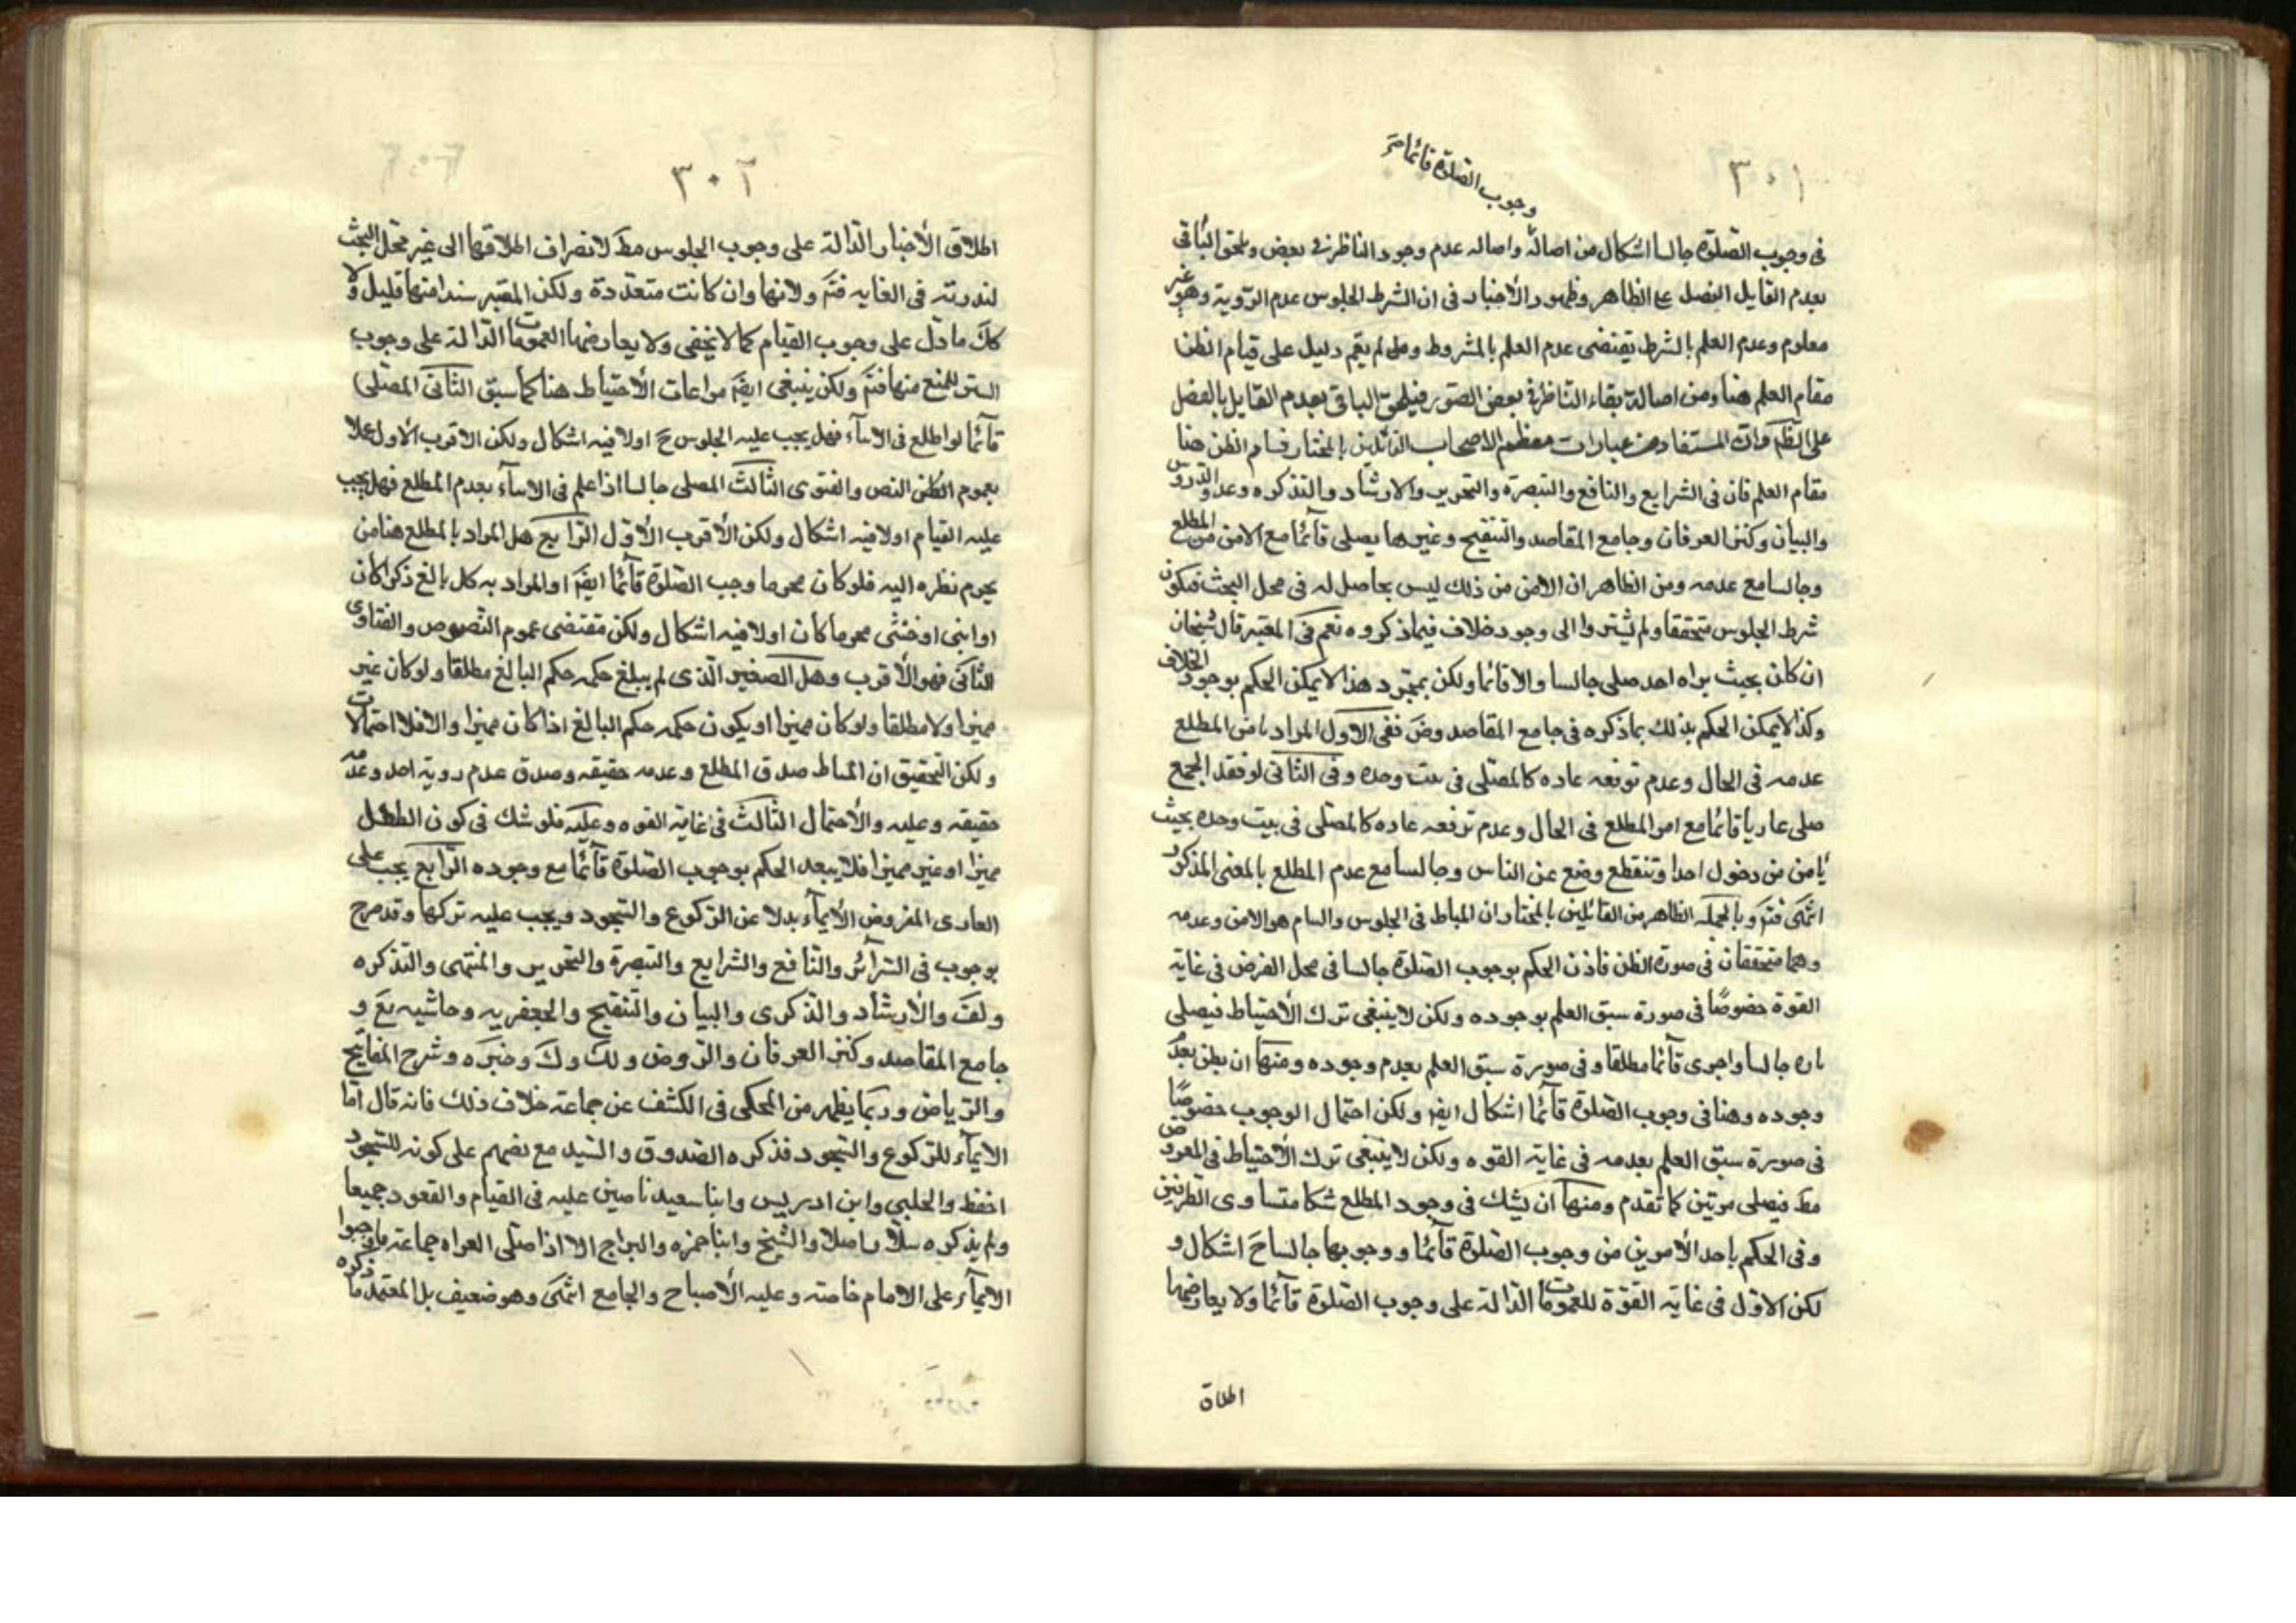 ٣٠١
وجوب الصلوة قائما
فى وجوب الصلوة جالسا اشكال من اصالة واصاله عدم وجود الناظر فى بعض ويلحق الباقى
بعدم القايل الفصل على الظاهر وظهور الأخبار فى ان الشرط الجلوس عدم الرؤية وهو غير
معلوم وعدم العلم بالشرط يقتضى عدم العلم بالمشروط ولم يقم دليل على قيام الظن
مقام العلم هنا ومن اصالة بقاء الناظر فى بعض الصور فيلحق الباقى بعدم القايل بالفصل
على الظَم وان المستفاد من عبارات معظم الاصحاب القائلين بالمختار قيام الظن هنا
مقام العلم فان فى الشرايع والنافع والتبصرة والتحرير والارشاد والتذكره وعد والدروس
والبيان وكنز العرفان وجامع المقاصد والتنقيح وغيرها يصلى قآئما مع الامن من المطلع
وجالسا مع عدمه ومن الظاهر ان الامن من ذلك ليس بحاصل له فى محل البحث فيكون
شرط الجلوس متحققا ولم يشيروا الى وجود خلاف فيما ذكروه نعم فى المعتبر قال شيخان
ان كان بحيث يراه احد صلى جالسا والا قائما ولكن بمجرد هذا لا يمكن الحكم بوجود الخلاف
وكذا لا يمكن الحكم بذلك بما ذكره فى جامع المقاصد وضَ ففى الاول المراد بامن المطلع
عدمه فى الحال وعدم توقعه عاده كالمصلى فى بيت وحده وفى الثانى لو فقد الجمع
صلى عاريا قائما مع امن المطلع فى الحال وعدم ترقعه عاده كالمصلى فى بيت وحده بحيث
يأمن من دخول احد او تنقطع وضع عن الناس وجالسا مع عدم المطلع بالمعنى المذكور
انتهى فتَم وبالجمله الظاهر من القائلين بالمختار ان المناط فى الجلوس والقيام هو الامن وعدمه
وهما متحققان فى صورة الظن فاذن الحكم بوجوب الصلوة جالسا فى محل الفرض فى غاية
القوة خصوصًا فى صورة سبق العلم بوجوده ولكن لا ينبغى ترك الأحتياط فيصلى
تارة جالسا واخرى قآئما مطلقا وفى صورة سبق العلم بعدم وجوده ومنها ان يظن بعدم
وجوده وهنا فى وجوب الصلوة قآئما اشكال ايضَ ولكن احتمال الوجوب خصوصًا
فى صورة سبق العلم بعدمه فى غاية القوه ولكن لا ينبغى ترك الأحتياط فى المفروض
مطَ فيصلى مرتين كما تقدم ومنها ان يشك فى وجود المطلع شكا متساوى الطرفين
وفى الحكم باحد الأمرين من وجوب الصلوة قآئما ووجوبها جالسا حَ اشكال و
لكن الاوّل فى غاية القوّة للعمومات الدالة على وجوب الصلوة قآئما ولا يعارضها
اطلاق
٣٠٢
اطلاق الأخبار الدالة على وجوب الجلوس مطَ لانصراف اطلاقها الى غير محل البحث
لندرته فى الغايه فتَم ولانها وان كانت متعددة ولكن المعتبر سندا منها قليل ولا
ككَ ما دل على وجوب القيام كما لا يخفى ولا يعارضها العمومات الدالة على وجوب
الستر للمنع منها فتَم ولكن ينبغى ايضَ مراعات الأحتياط هنا كما سبق الثانى المصلى
قآئما لو اطلع فى الاثنآء فهل يجب عليه الجلوس حَ اولا فيه اشكال ولكن الاقرب الأول عملا
بعموم الظن النص والفتوى الثالث المصلى جالسا اذا علم فى الاثنآء بعدم المطلع فهل يجب
عليه القيام اولا فيه اشكال ولكن الأقرب الأوّل الرّابع هل المراد بالمطلع هنا من
يحرم نظره اليه فلو كان محرما وجب الصلوة قآئما ايضَ او المراد به كل بالغ ذكرا كان
او انثى او خنثى محرما كان اولا فيه اشكال ولكن مقتضى عموم النصوص والفتاوى
الثانى فهو الأقرب وهل الصغير الذى لم يبلغ حكمه حكم البالغ مطلقا ولو كان غير
مميزا ولا مطلقا ولو كان مميزا او يكون حكمه حكم البالغ اذا كان مميزا والا فلا احتمالات
ولكن التحقيق ان المناط صدق المطلع وعدمه حقيقه وصدق عدم روية احد وعدمه
حقيقه وعليه والأحتمال الثالث فى غاية القوه وعليه فلو شك فى كون الطفل
مميزا او غير مميزا فلا يبعد الحكم بوجوب الصلوة قآئما مع وجوده الرّابع يجب على
العارى المفروض الأيمآء بدلا عن الركوع والسجود ويجب عليه تركها وقد صرح
بوجوب فى السرآئر والنافع والشرايع والتبصرة والتحرير والمنتهى والتذكره
ولفَ والأرشاد والذكرى والبيان والتنقيح والجعفريه وحاشيه يعَ و
جامع المقاصد وكنز العرفان والروض ولك وكَ وخيَره وشرح المفاتيح
والرّياض وربما يظهر من المحكى فى الكشف عن جماعة خلاف ذلك فانه قال اما
الايمآء للركوع والسجود فذكره الصدوق والسيد مع نصهم على كونه للسجود
اخفظ والحلبى وابن ادريس وابنا سعيد ناصين عليه فى القيام والقعود جميعا
ولم يذكره سلار اصلا والشيخ وابنا حمزه والبراج الا اذا صلى العراة جماعة فاوجبوا
الايمآء على الامام خاصته وعليه الأصباح والجامع انتهى وهو ضعيف بل المعتمد ما ذكره